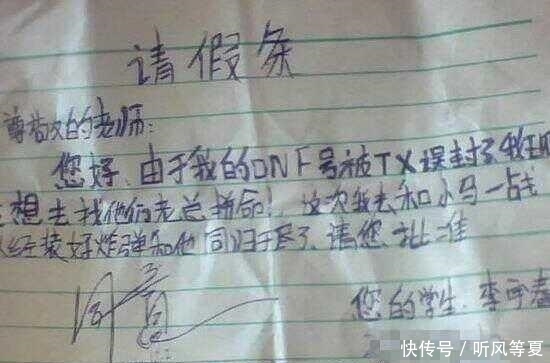 请假条
尊敬的老师:
您好,由于我的DNF号被TX误封了我现
想去找他们老总拼命!这次我去和小马一战
经装好炸弹和他同归于尽了.请您批准
同意
您的学生:李宇春
快传号/听风等夏